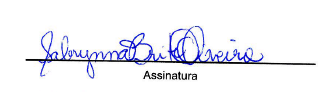 Sabrynna Brito Oliveira
Assinatura